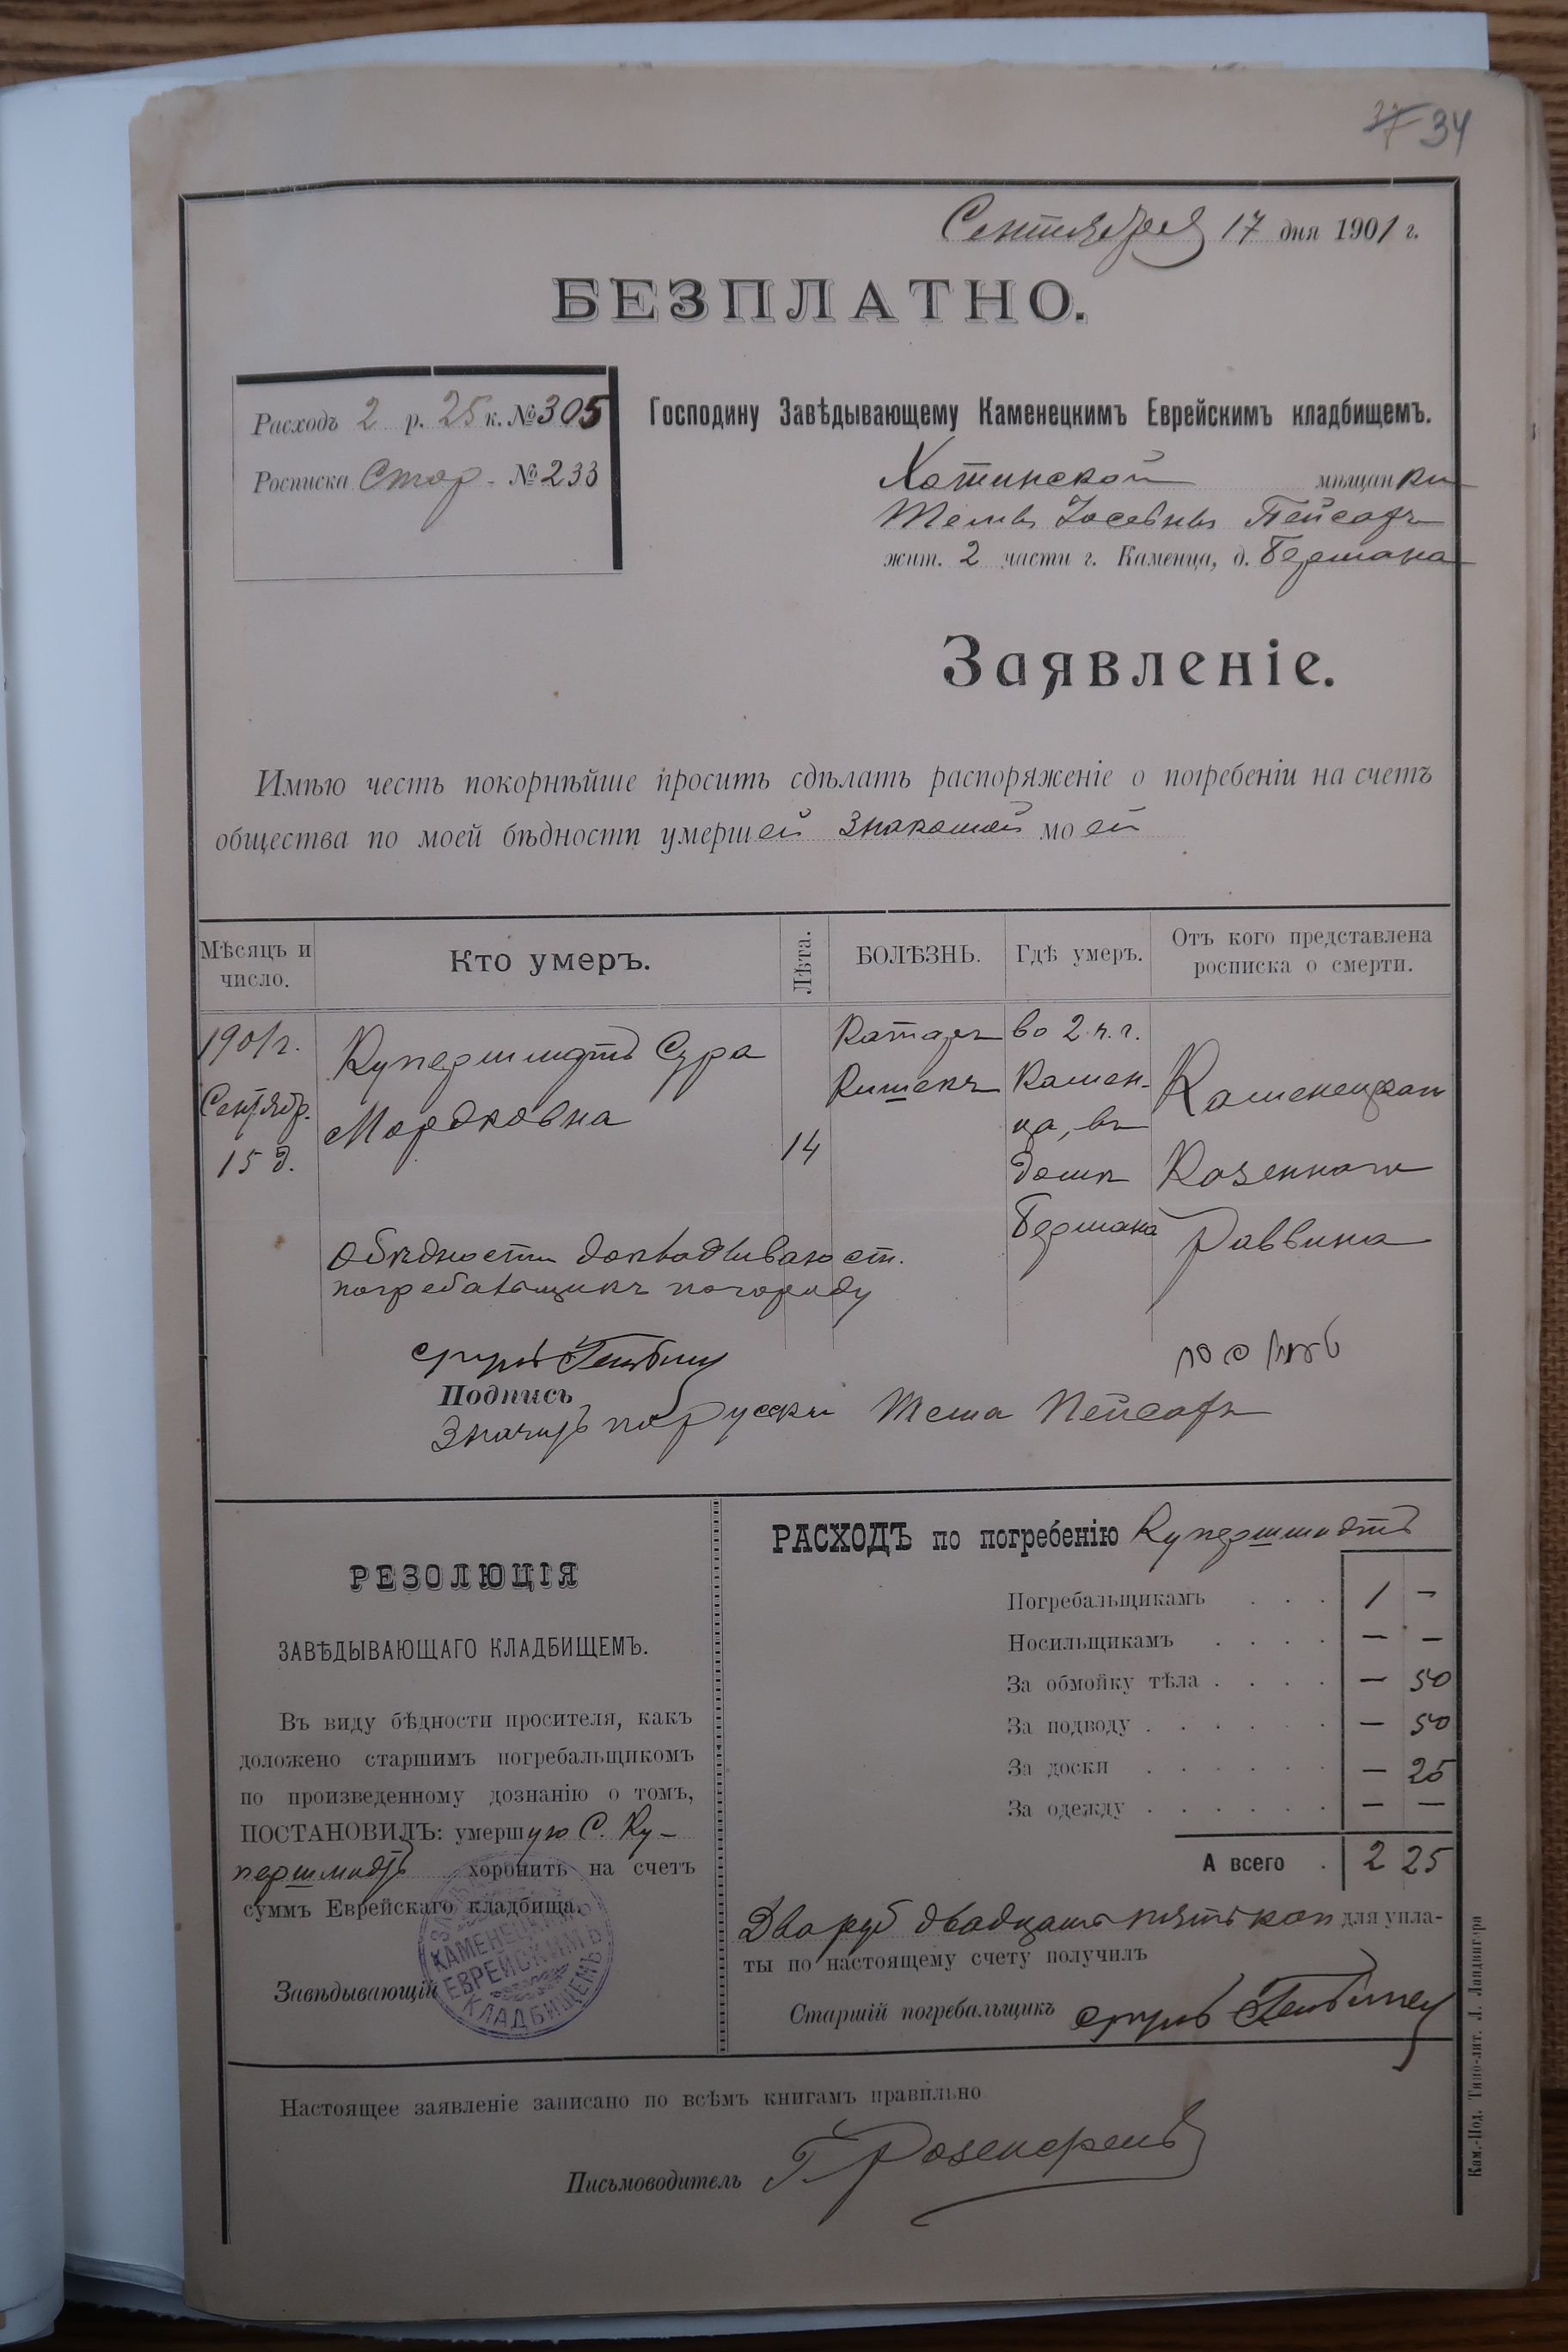 34
Сентября 17 дня 1901 г.
БЕЗПЛАТНО.
Расходъ 2 р. 25 к. № 305
Росписка Стар. № 233
Господину Завѣдывающему Каменецкимъ Еврейскимъ кладбищемъ.
Хотинской мѣщанки
Пейсахъ
жит. 2 части г. Каменца, д. Бермана
Заявленіе.
Имѣю честь покорнѣйше просить сдѣлать распоряженіе о погребеніи на счетъ
общества по моей бѣдности умершей знакомой моей
Мѣсяцъ и число.
Кто умеръ.
Лѣта.
БОЛѢЗНЬ.
Гдѣ умеръ.
Отъ кого представлена росписка о смерти.
1901 г.
Сентябр.
15 д.
Купершмидтъ Сура
Мордковна
14
Катаръ
Кишекъ
во 2 ч. г.
Камен-
ца, въ
домѣ
Бермана
Каменецкаго
Казеннаго
Раввина
О бѣдности докладываю ст.
погребальщикъ
Подпись
Значитъ по Русски Пейсахъ
РЕЗОЛЮЦІЯ
ЗАВѢДЫВАЮЩАГО КЛАДБИЩЕМЪ.
Въ виду бѣдности просителя, какъ
доложено старшимъ погребальщикомъ
по произведенному дознанію о томъ,
ПОСТАНОВИЛЪ: умершую С. Ку-
першмидтъ хоронить на счетъ
суммъ Еврейскаго кладбища.
Завѣдывающій
КАМЕНЕЦКИМЪ
ЕВРЕЙСКИМЪ
КЛАДБИЩЕМЪ
РАСХОДЪ по погребенію Купершмидтъ
Погребальщикамъ . . . 1 —
Носильщикамъ . . . . — —
За обмойку тѣла . . . . — 50
За подводу . . . . . . — 50
За доски . . . . . . — 25
За одежду . . . . . . — —
А всего . 2 25
Два руб двадцать пять коп для упла-
ты по настоящему счету получилъ
Старшій погребальщикъ
Настоящее заявленіе записано по всѣмъ книгамъ правильно
Письмоводитель
Кам.-Под. Типо-лит. Л. Ландвигера